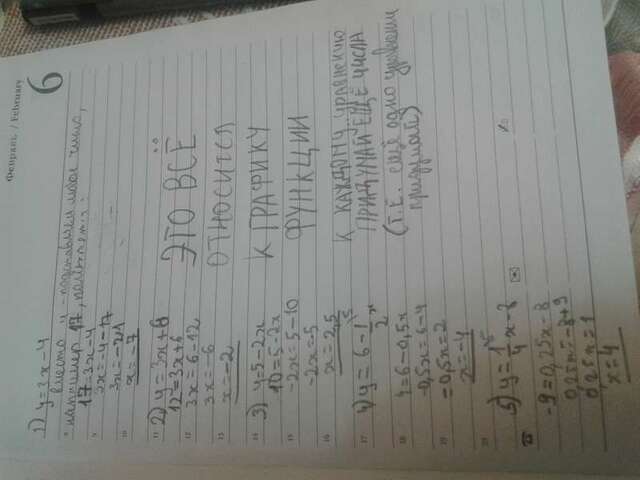 Февраль / February
6
1) y=3x-4
вместо y - подставляем любое число,
например 17, получается:
17=3x-4
9
3x=-4-17
3x=-21
10
x=-7
11
2) y=3x+6
12=3x+6
12
3x=6-12
3x=-6
13
x=-2
14
3) y=5-2x
10=5-2x
15
-2x=5-10
-2x=5
16
x=2,5
17
4) y=6-1/2x
18
4=6-0,5x
-0,5x=6-4
19
=0,5x=2
x=-4
20
5) y=1/4x-8
-9=0,25x-8
0,25x=-8+9
0,25x=1
x=4
ЭТО ВСЁ
ОТНОСИТСЯ
К ГРАФИКУ
ФУНКЦИИ
К КАЖДОМУ УРАВНЕНИЮ
ПРИДУМАЙ ЕЩЁ ЧИСЛА
(т.е. ещё одно уравнение
придумай)